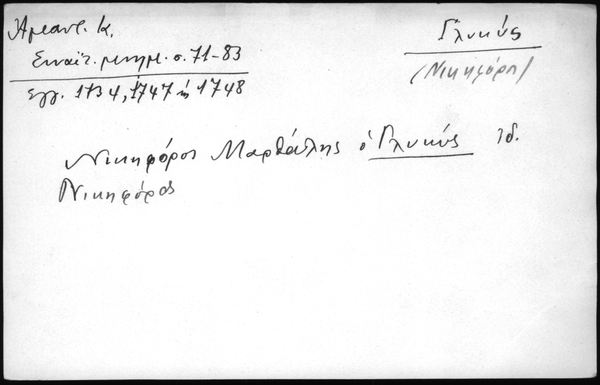 Ἄμαντ. Κ.
Σιναϊτ. μνημ. σ. 71-83
Ἐγγ. 1734, 1747 ἢ 1748
Γλυκύς
(Νικηφόρη)
Νικηφόρος Μαρθάλης ὁ Γλυκύς ιδ.
Νικηφόρος